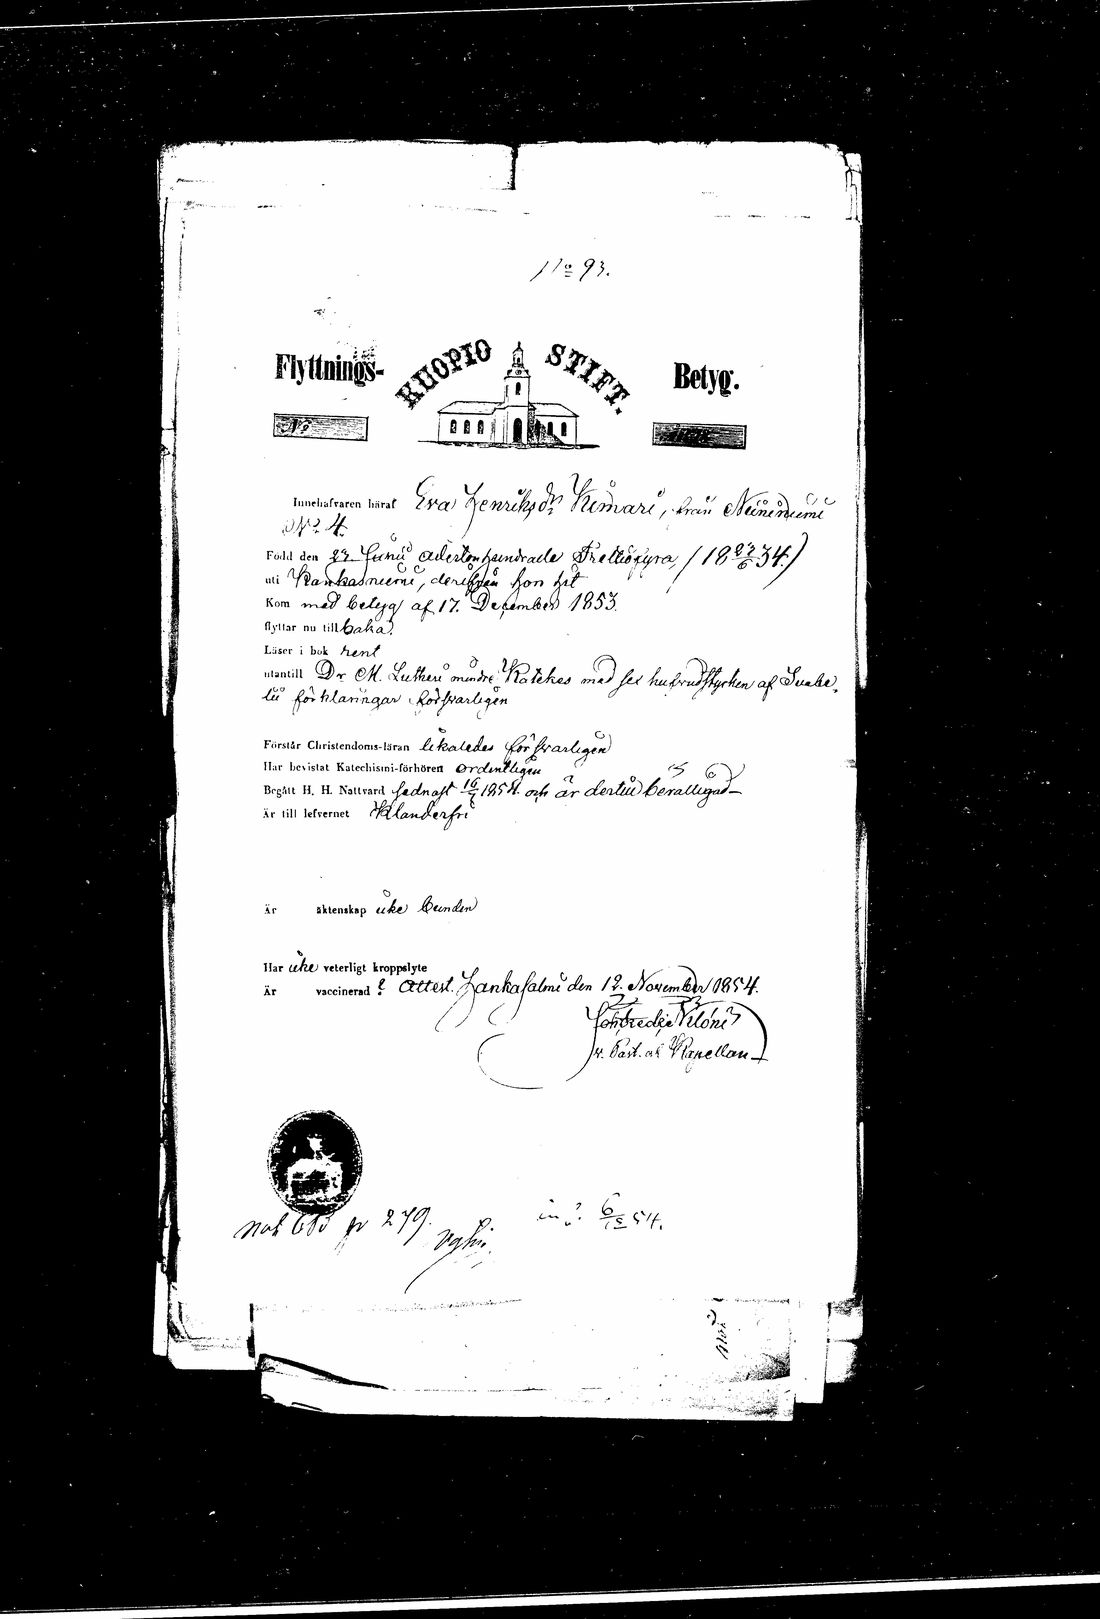 No 93.
Flyttnings- KUOPIO STIFT. Betyg.
No
Innehafvaren häraf Eva Henriksdr Kinnari, från Niininiemi
No 4.
Född den 27. Junii adertonhundrade Trettiofyra, (18 27/6 34.)
uti Kankasniemi, derifrån hon hit
Kom med betyg af 17. December 1853.
flyttar nu tillbaka.
Läser i bok rent
utantill Dr. M. Lutheri mindre Katekes med sex hufvudstycken af Svebe-
lii förklaringar försvarligen
Förstår Christendoms-läran likaledes försvarligen
Har bevistat Katechismi-förhören ordentligen
Begått H. H. Nattvard sednast 16/7 1854 och är dertill berättigad
Är till lefvernet Klanderfri
Är äktenskap icke bunden
Har icke veterligt kroppslyte
Är vaccinerad? Attest. Hankasalmi den 12. November 1854.
v. Past. och Kapellan
279.
6/12 54.